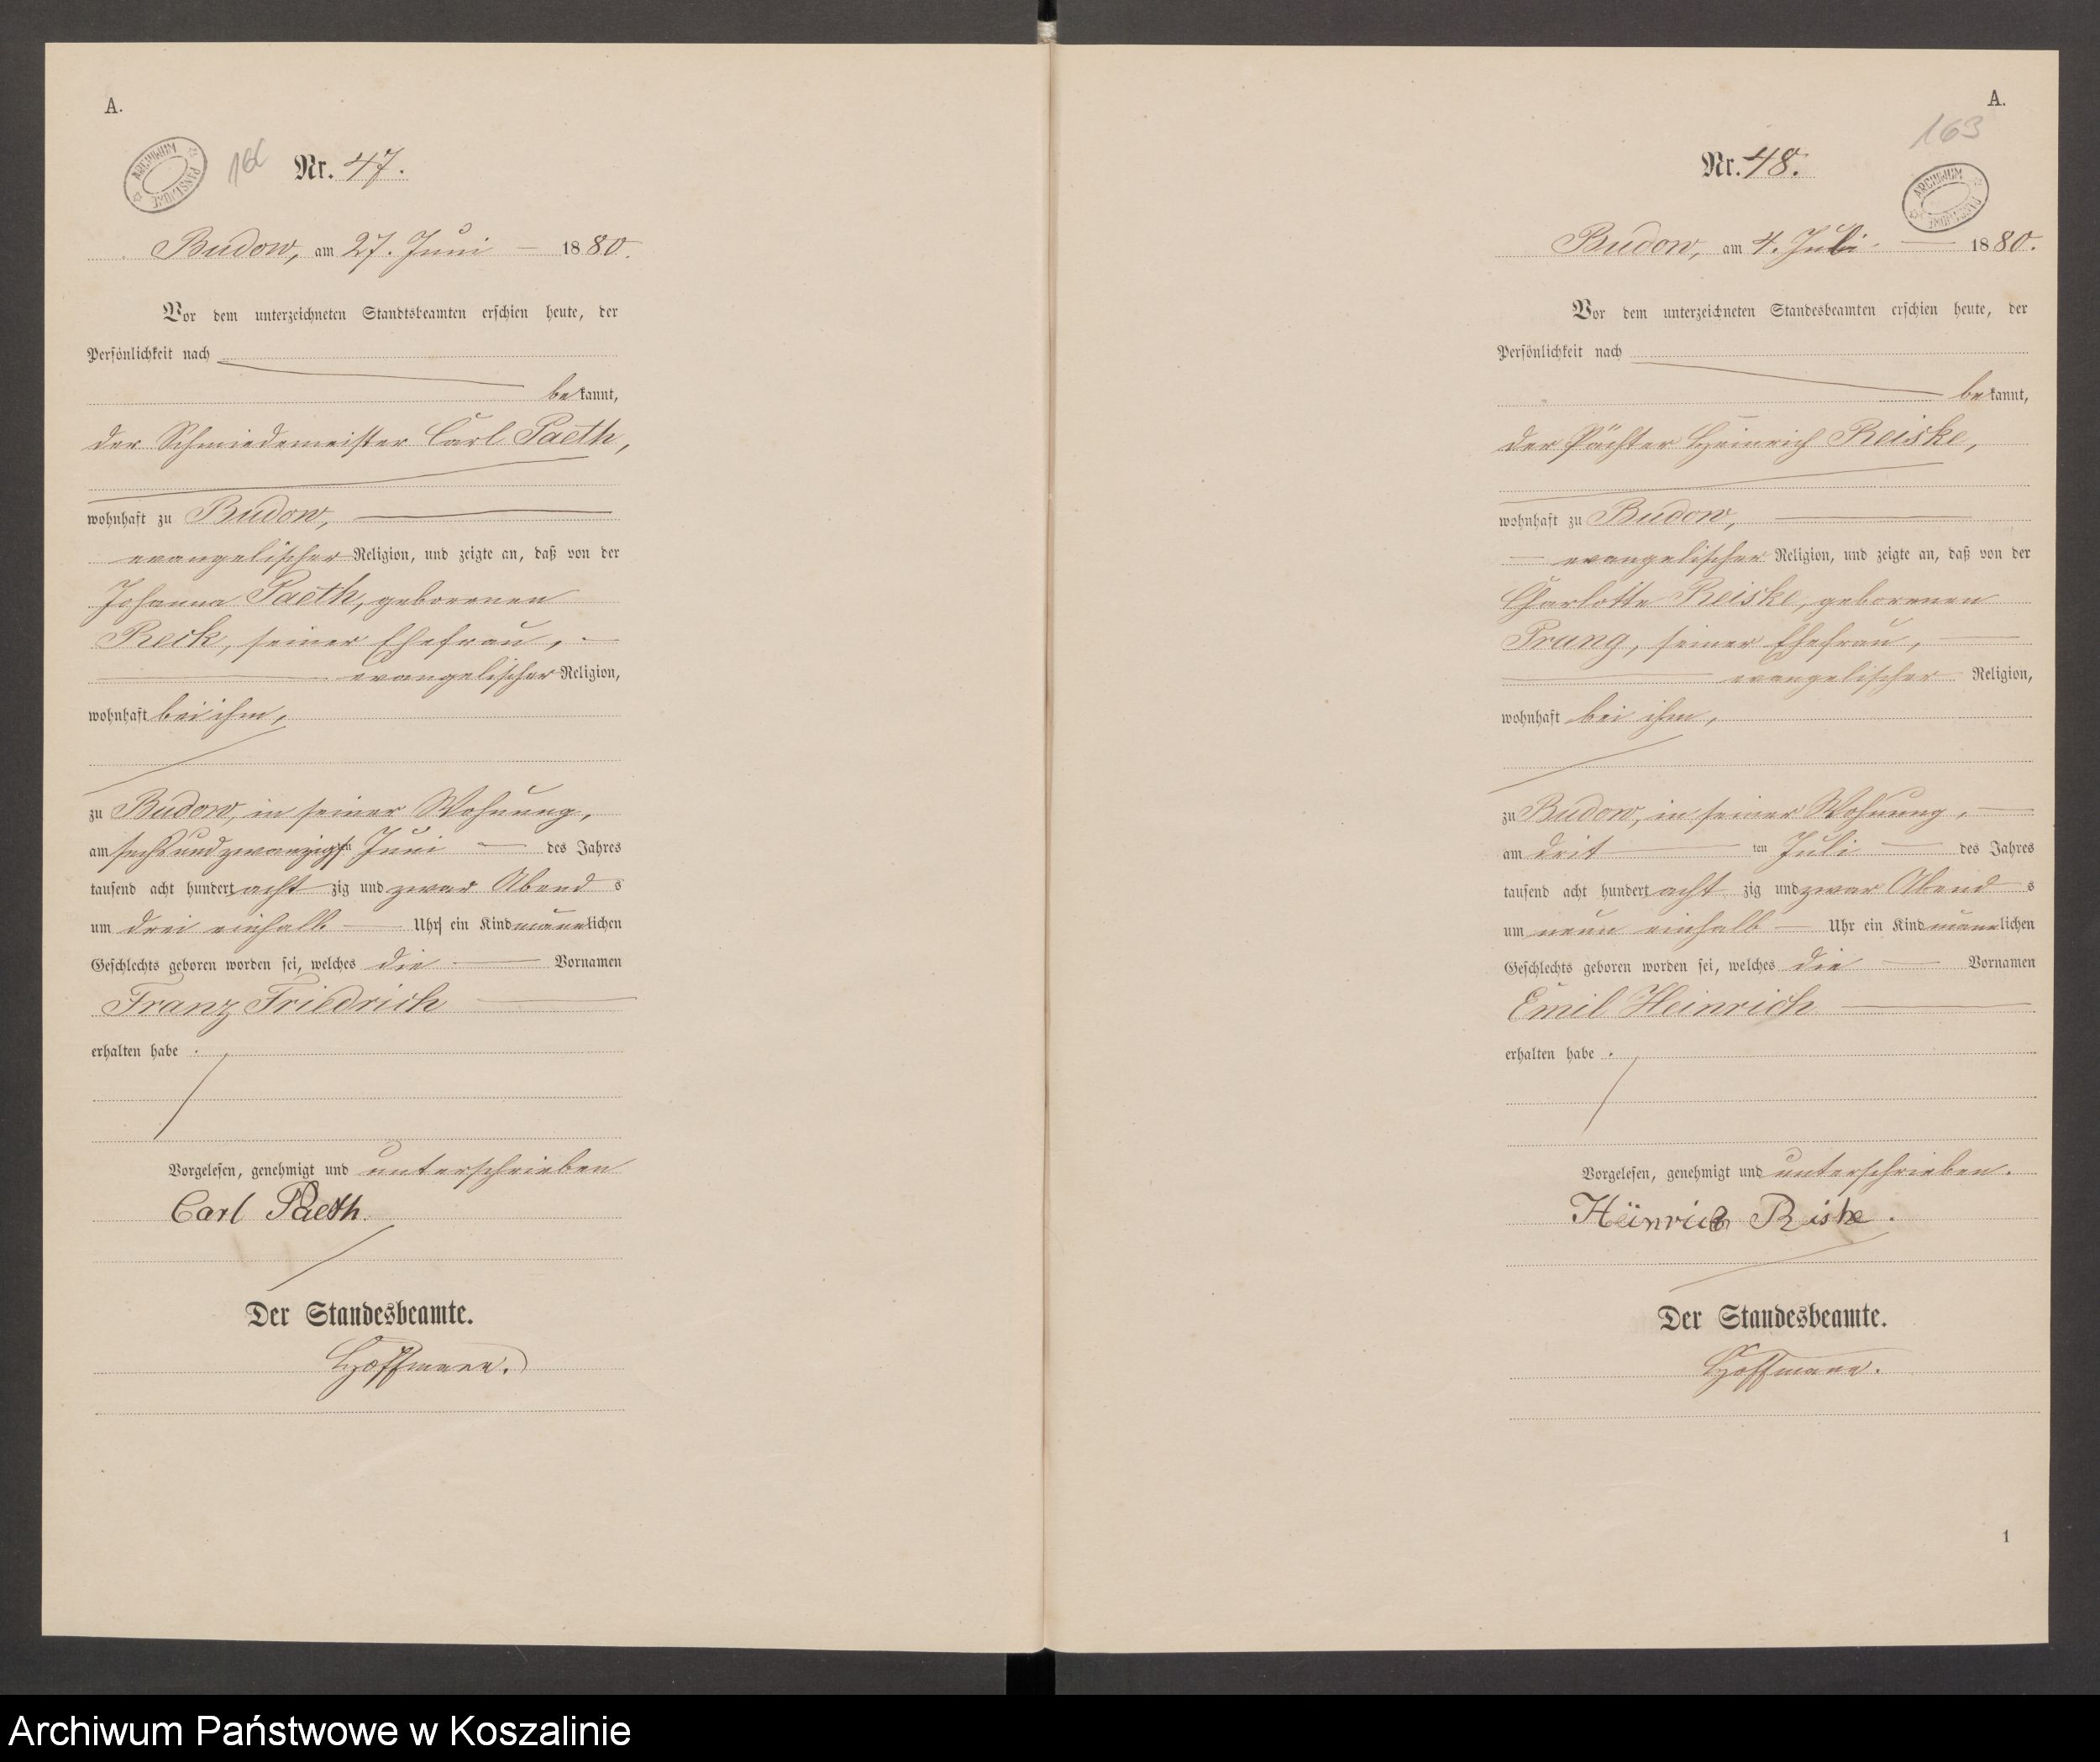 A.
ARCHIWUM PAŃSTWOWE
Nr. 47.
Budow, am 27. Juni 1880.
Vor dem unterzeichneten Standtsbeamten erschien heute, der
Persönlichkeit nach
bekannt,
der Schmiedemeister Carl Paeth,
wohnhaft zu Budow,
evangelischer Religion, und zeigte an, daß von der
Johanna Paeth, geborenen
Reck, seiner Ehefrau,
evangelischer Religion,
wohnhaft bei ihm,
zu Budow, in seiner Wohnung,
am sechsundzwanzigsten Juni des Jahres
tausend acht hundert achtzig und zwar Abends
um drei einhalb Uhr ein Kind männlichen
Geschlechts geboren worden sei, welches die Vornamen
Franz Friedrich
erhalten habe.
Vorgelesen, genehmigt und unterschrieben
Carl Paeth.
Der Standesbeamte.
Hoffmann.
A.
163
Nr. 48.
ARCHIWUM PAŃSTWOWE
Budow, am 4. Juli 1880.
Vor dem unterzeichneten Standesbeamten erschien heute, der
Persönlichkeit nach
bekannt,
der Pächter Heinrich Reiske,
wohnhaft zu Budow,
evangelischer Religion, und zeigte an, daß von der
Charlotte Reiske, geborenen
Prang, seiner Ehefrau,
evangelischer Religion,
wohnhaft bei ihm,
zu Budow, in seiner Wohnung,
am dritten Juli des Jahres
tausend acht hundert achtzig und zwar Abends
um neun einhalb Uhr ein Kind männlichen
Geschlechts geboren worden sei, welches die Vornamen
Emil Heinrich
erhalten habe.
Vorgelesen, genehmigt und unterschrieben.
Heinrich Riske.
Der Standesbeamte.
Hoffmann.
1
Archiwum Państwowe w Koszalinie